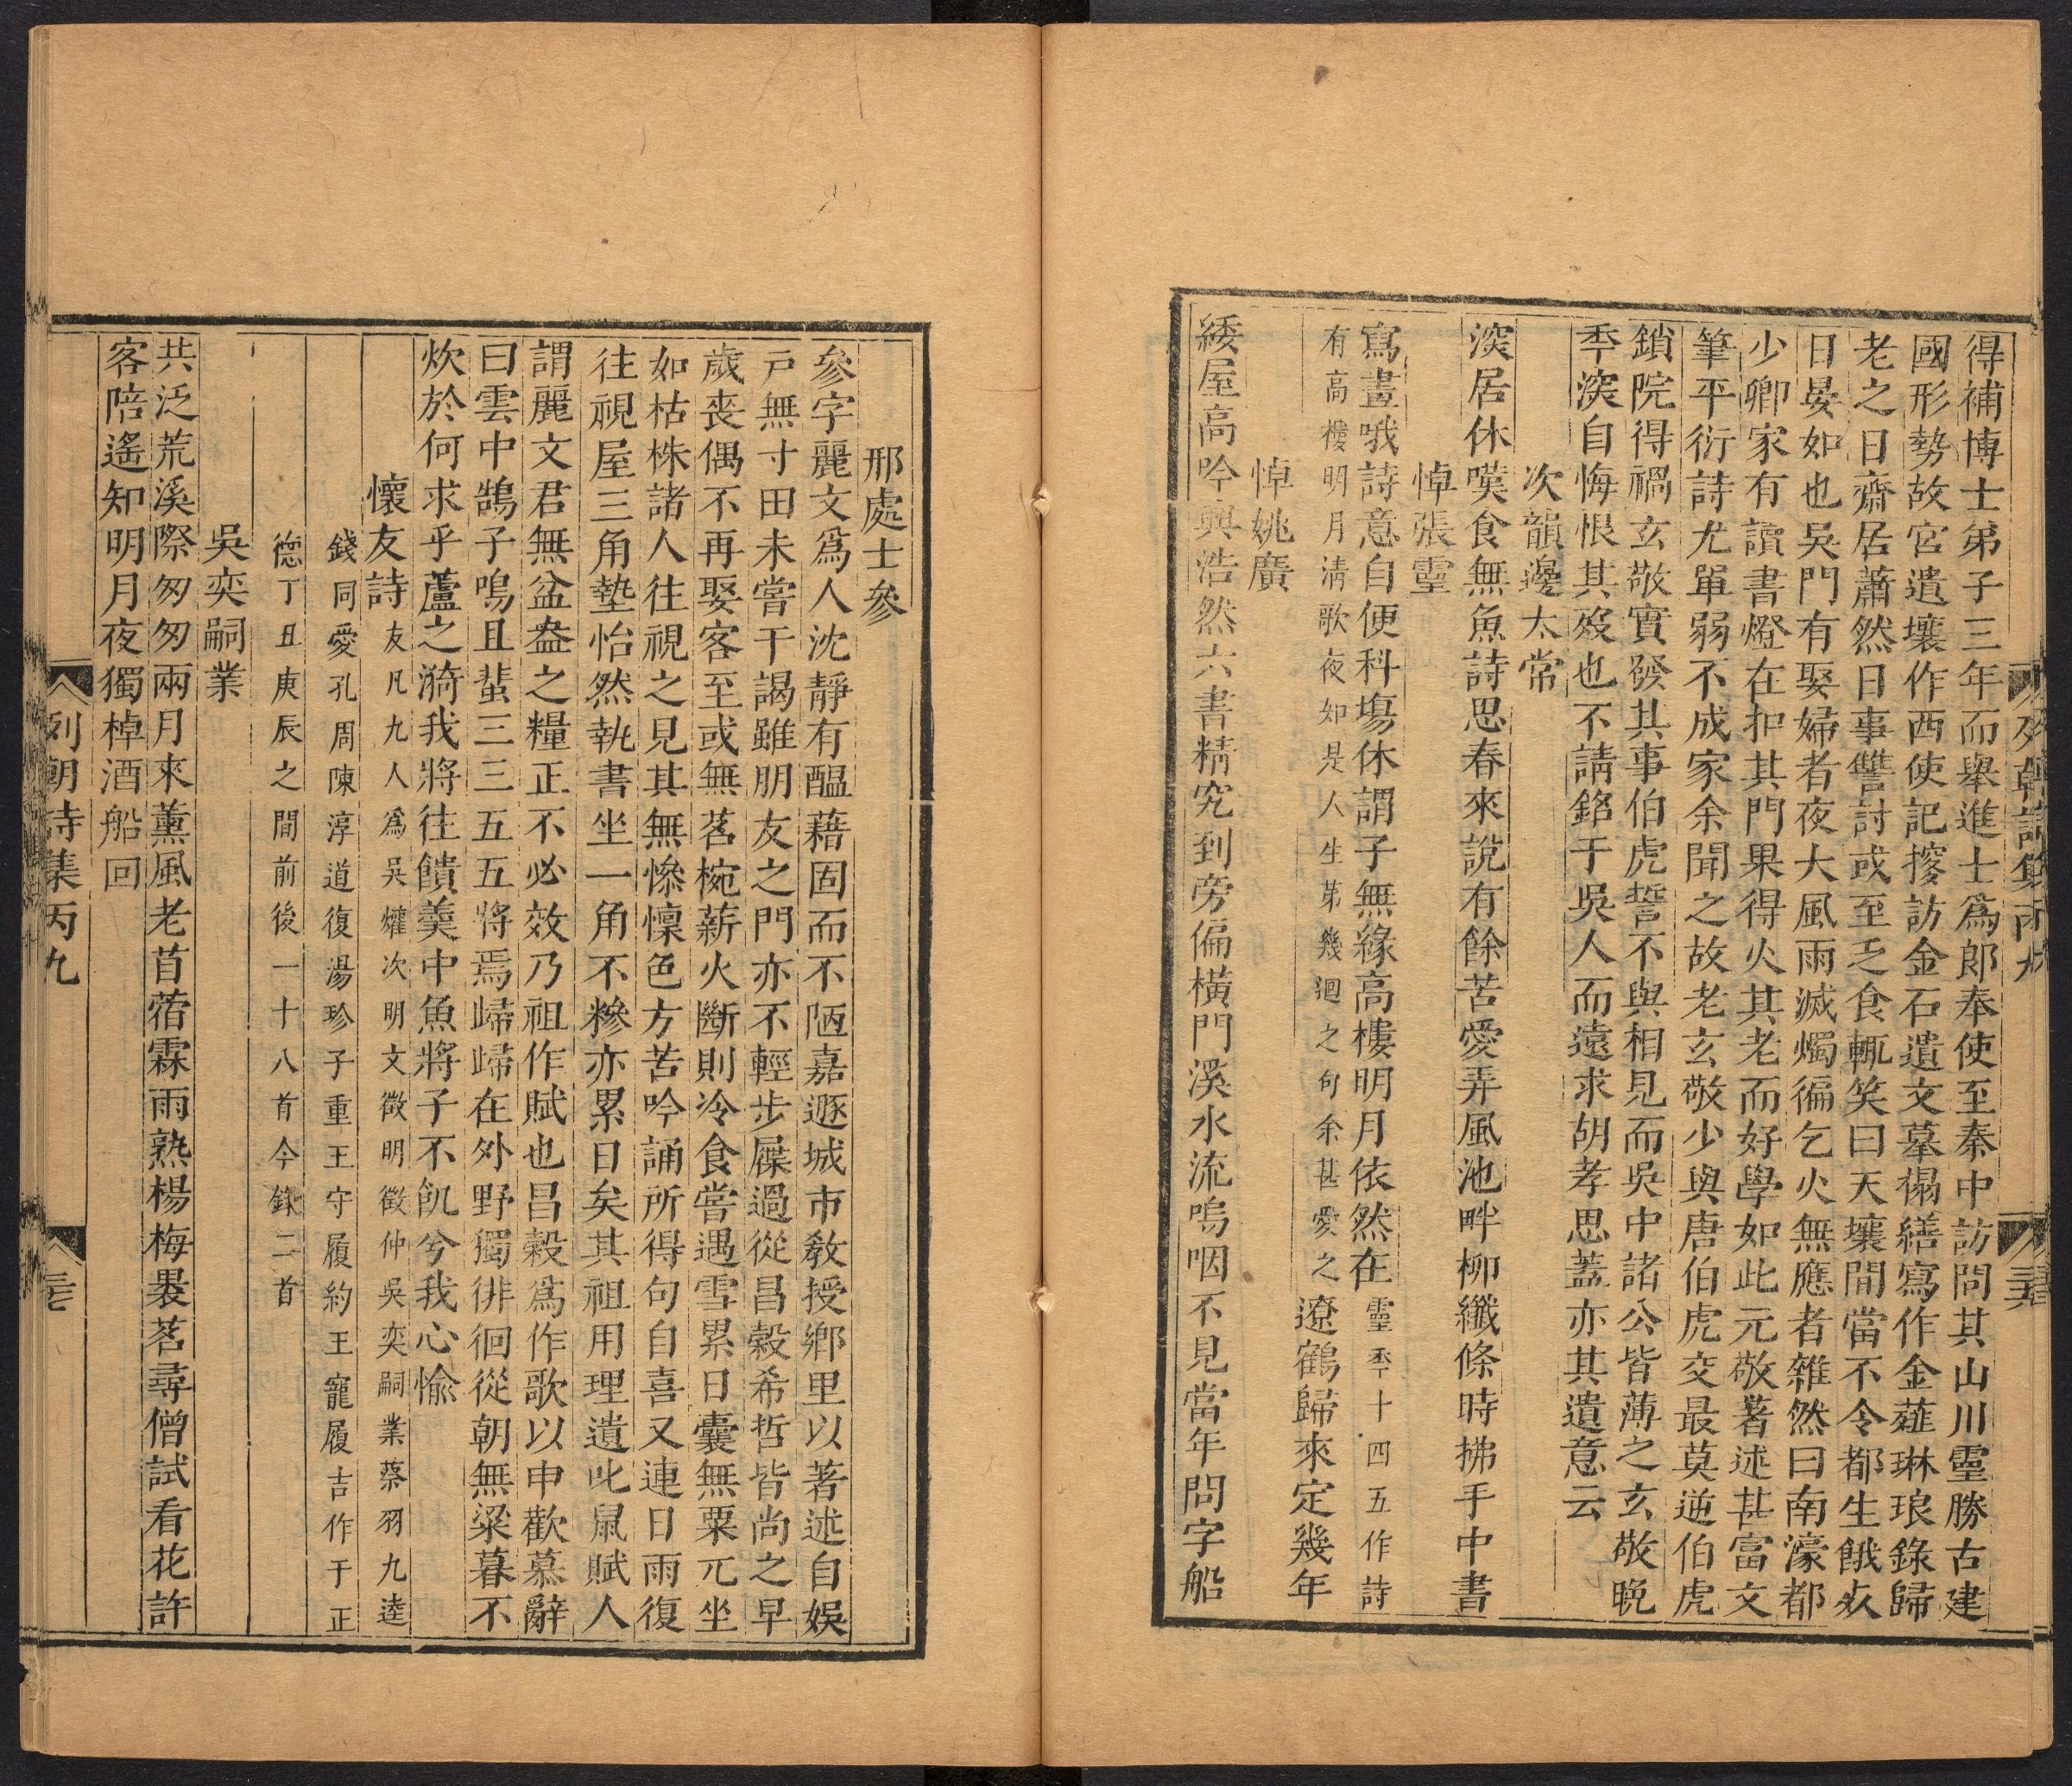 得補博士弟子三年而舉進士爲郎奉使至秦中訪問其山川靈勝古建
國形勢故宮遺壤作西使記搜訪金石遺文摹榻繕寫作金薤琳琅錄歸
老之日齋居蕭然日事讐討或至乏食輒笑曰天壤間當不令都生餓死
日晏如也吳門有娶婦者夜大風雨滅燭徧乞火無應者雜然曰南濠都
少卿家有讀書燈在扣其門果得火其老而好學如此元敬著述甚富文
筆平衍詩尤單弱不成家余聞之故老玄敬少與唐伯虎交最莫逆伯虎
鎖院得禍玄敬實發其事伯虎誓不與相見而吳中諸公皆薄之玄敬晚
秊深自悔恨其歿也不請銘于吳人而遠求胡孝思蓋亦其遺意云
次韻邊太常
深居休嘆食無魚詩思春來說有餘苦愛弄風池畔柳纖條時拂手中書
悼張靈
寫畫哦詩意自便科塲休謂子無緣高樓明月依然在靈秊十四五作詩
有高樓明月淸歌夜如是人生第幾迴之句余甚愛之遼鶴歸來定幾年
悼姚廣
緌屋高吟興浩然六書精究到旁偏橫門溪水流嗚咽不見當年問字船
列朝詩集丙九
邢處士參
參字麗文爲人沈靜有醞藉固而不陋嘉遯城市敎授鄉里以著述自娛
戸無寸田未嘗干謁雖朋友之門亦不輕步屧過從昌穀希哲皆尚之早
歲喪偶不再娶客至或無茗椀薪火斷則冷食嘗遇雪累日囊無粟兀坐
如枯株諸人往視之見其無慘懍色方苦吟誦所得句自喜又連日雨復
往視屋三角墊怡然執書坐一角不糝亦累日矣其祖用理遺此鼠賦人
謂麗文君無盆盎之糧正不必效乃祖作賦也昌穀爲作歌以申歡慕辭
曰雲中鵠子鳴且蜚三三五五將焉歸歸在外野獨徘徊從朝無粱暮不
炊於何求乎蘆之漪我將往饋羹中魚將子不飢兮我心愉
懷友詩友凡九人爲吳爟次明文徵明徵仲吳奕嗣業蔡羽九逵
錢同愛孔周陳淳道復湯珍子重王守履約王寵履吉作于正
德丁丑庚辰之間前後一十八首今錄二首
吳奕嗣業
共泛荒溪際匆匆兩月來薰風老苜蓿霖雨熟楊梅裹茗尋僧試看花許
客陪遙知明月夜獨棹酒船回
列朝詩集丙九